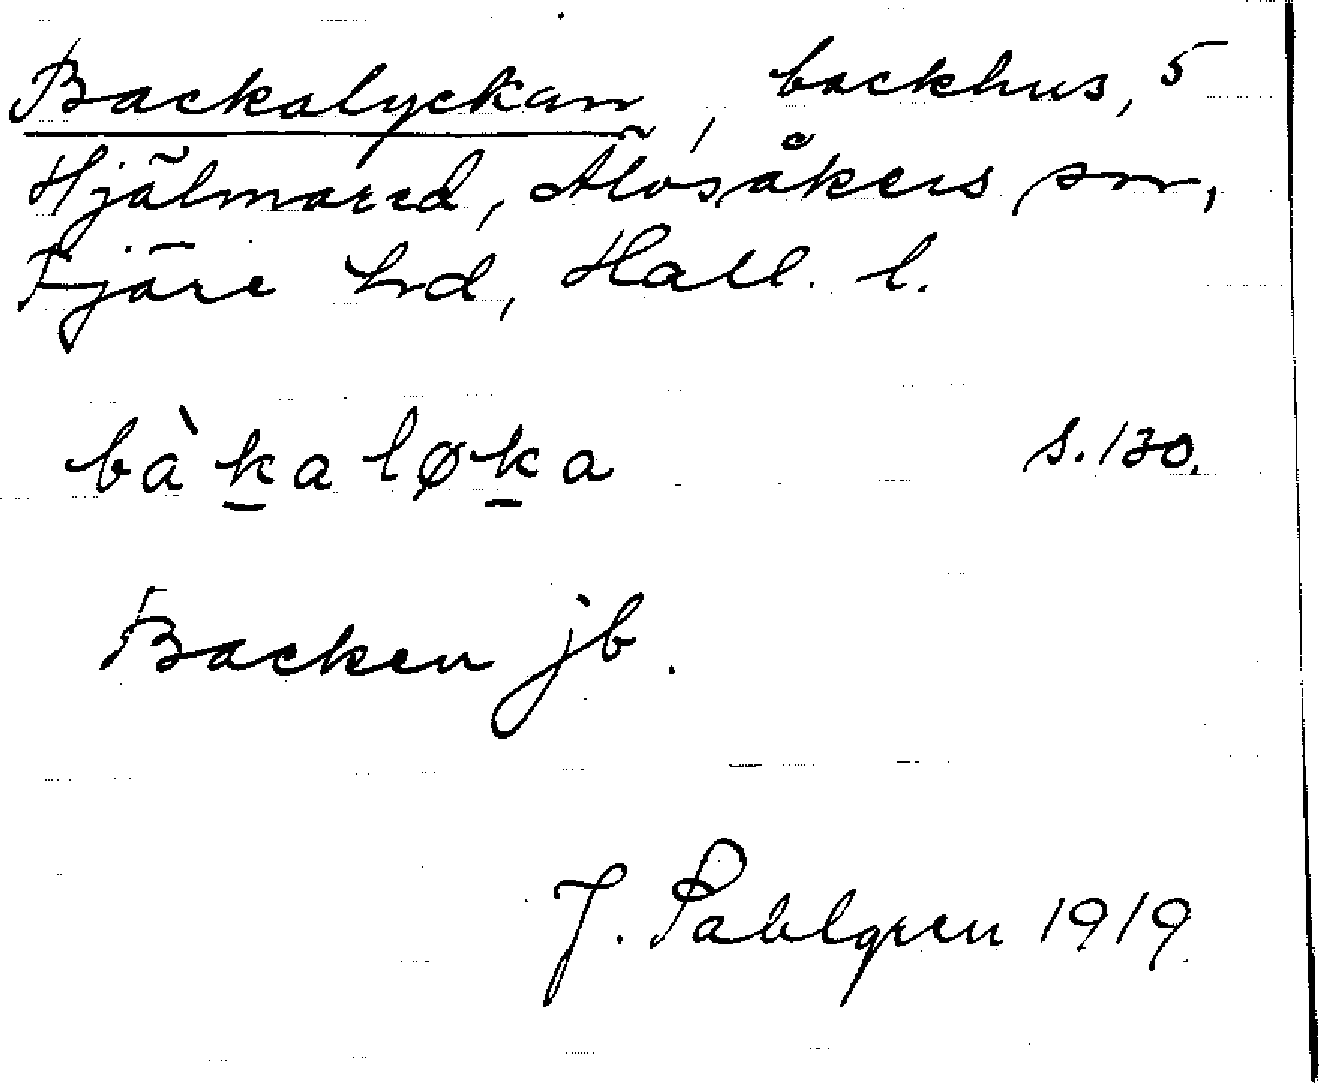 Backalyckan, backhus, 5
Hjälmared, Älvsåkers sn,
Fjäre hd, Hall. l.
bàkaløka s. 130.
Backen jb.
J. Sahlgren 1919